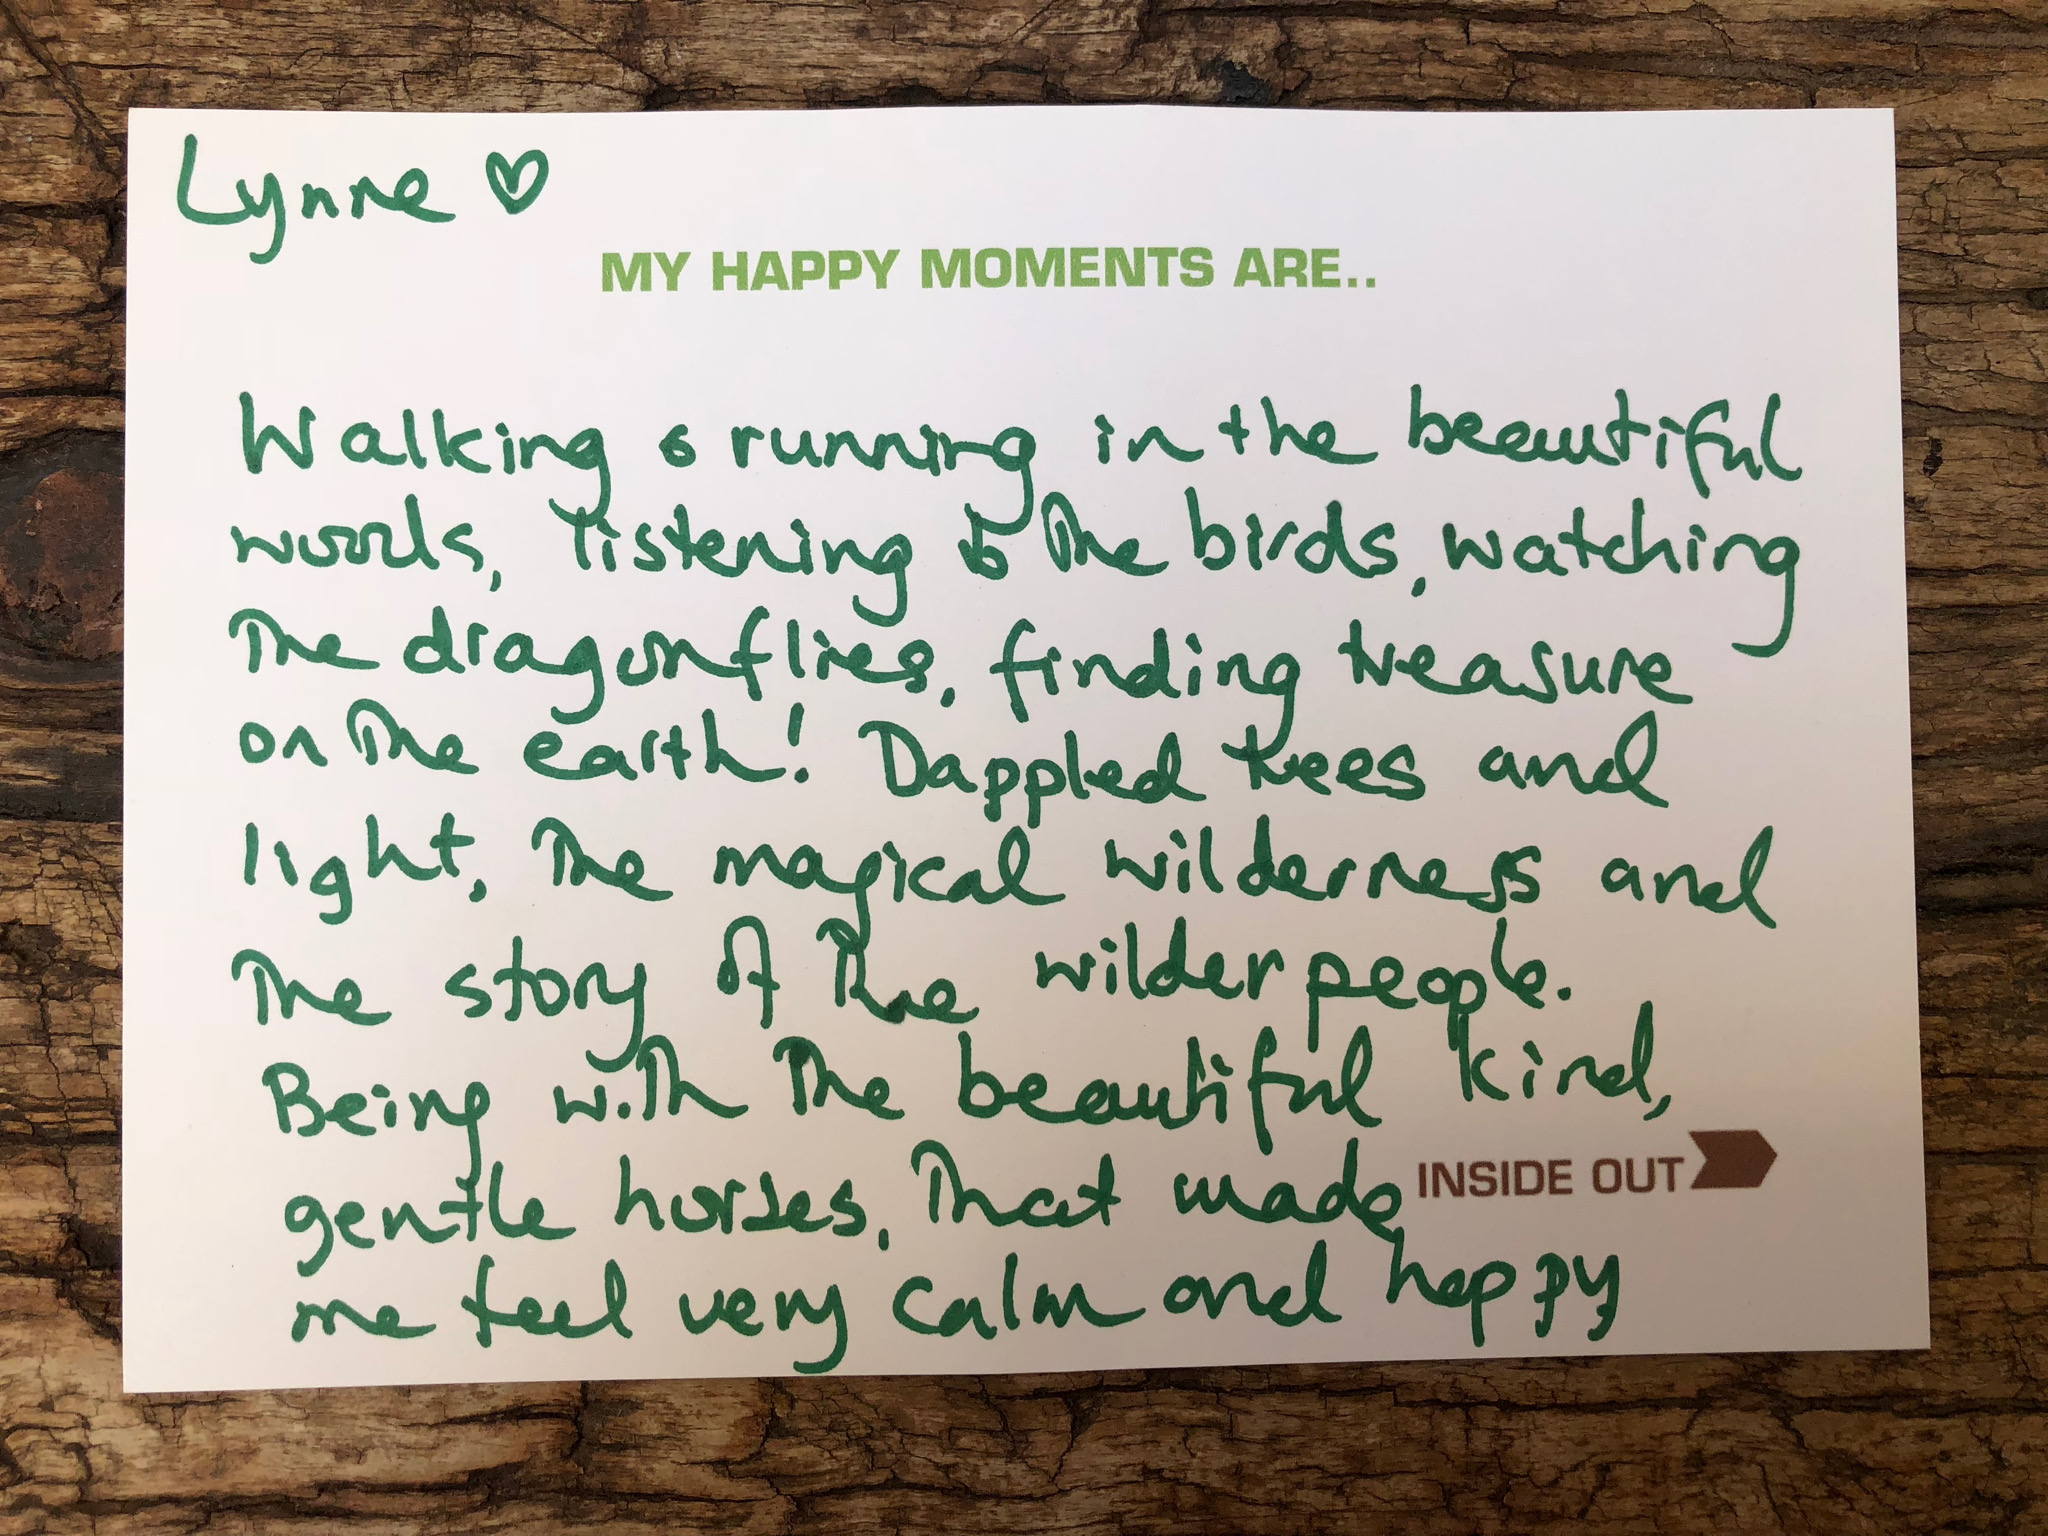 Lynne ♡
MY HAPPY MOMENTS ARE..
Walking & running in the beautiful
woods, listening to the birds, watching
the dragonflies, finding treasure
on the earth! Dappled trees and
light, the magical wilderness and
the story of the wilder people.
Being with the beautiful kind,
gentle horses, that made
INSIDE OUT
me feel very calm and happy